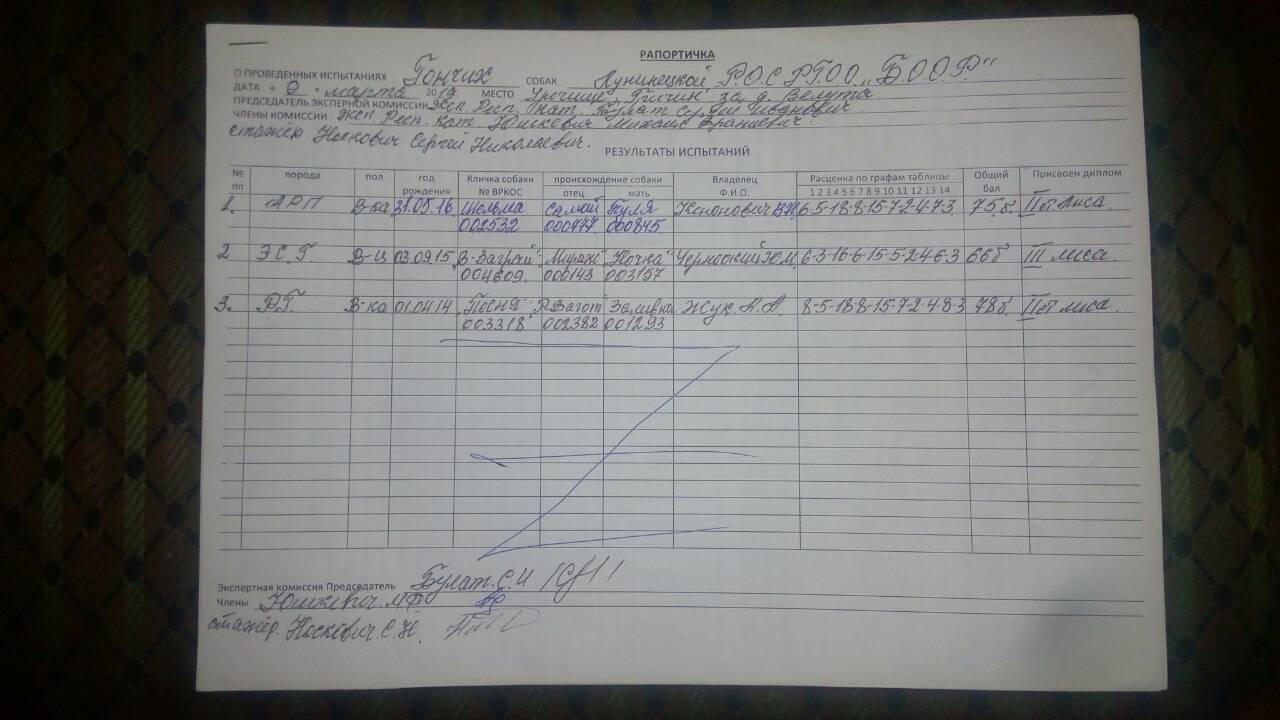 РАПОРТИЧКА
О ПРОВЕДЁННЫХ ИСПЫТАНИЯХ Гончих СОБАК Лунинецкой РОС РГОО „Б.О.О.Р“
ДАТА " 9 " марта 2019 МЕСТО Урочище за д. Велута
ПРЕДСЕДАТЕЛЬ ЭКСПЕРНОЙ КОМИССИИ Эксп. Респ. Кат. Булат Сергей Иванович
ЧЛЕНЫ КОМИССИИ Эксп. Респ. Кат. Юшкевич Михаил
стажёр Носкович Сергей Николаевич.
РЕЗУЛЬТАТЫ ИСПЫТАНИЙ
№ пп порода пол год рождения Кличка собаки № ВРКОС происхождение собаки отец мать Владелец Ф.И.О. Расценка по графам таблицы 1 2 3 4 5 6 7 8 9 10 11 12 13 14 Общий бал Присвоен диплом
1. АРП В-ка 31.05.16 Шельма Самой Пуля Кононович 6-5-18-8-15-7-2-4-7-3 75б. II ст лиса.
002532 000977 000845
2 Э.С.Г. В-ц 03.09.15 „В-Заграй“ „Мираж“ „Ночка“ 6-3-16-6-15-5-2-4-6-3 66б III лиса.
004609 000143 003157
3. РГ. В-ка 01.04.14 „Песня“ Заливка Жук А.А. 8-5-18-8-15-7-2-4-8-3 78б. II ст лиса.
003318 002382 001293
Экспертная комиссия Председатель Булат. С.И
Члены Юшкевич. М.Ф
стажёр. Носкович. С.Н.